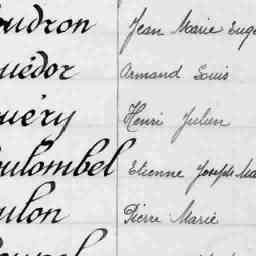 oudron Jean Marie Euge
uédor Armand Louis
uéry Henri Julien
oulombel Etienne Joseph Ma
ulon Pierre Marie